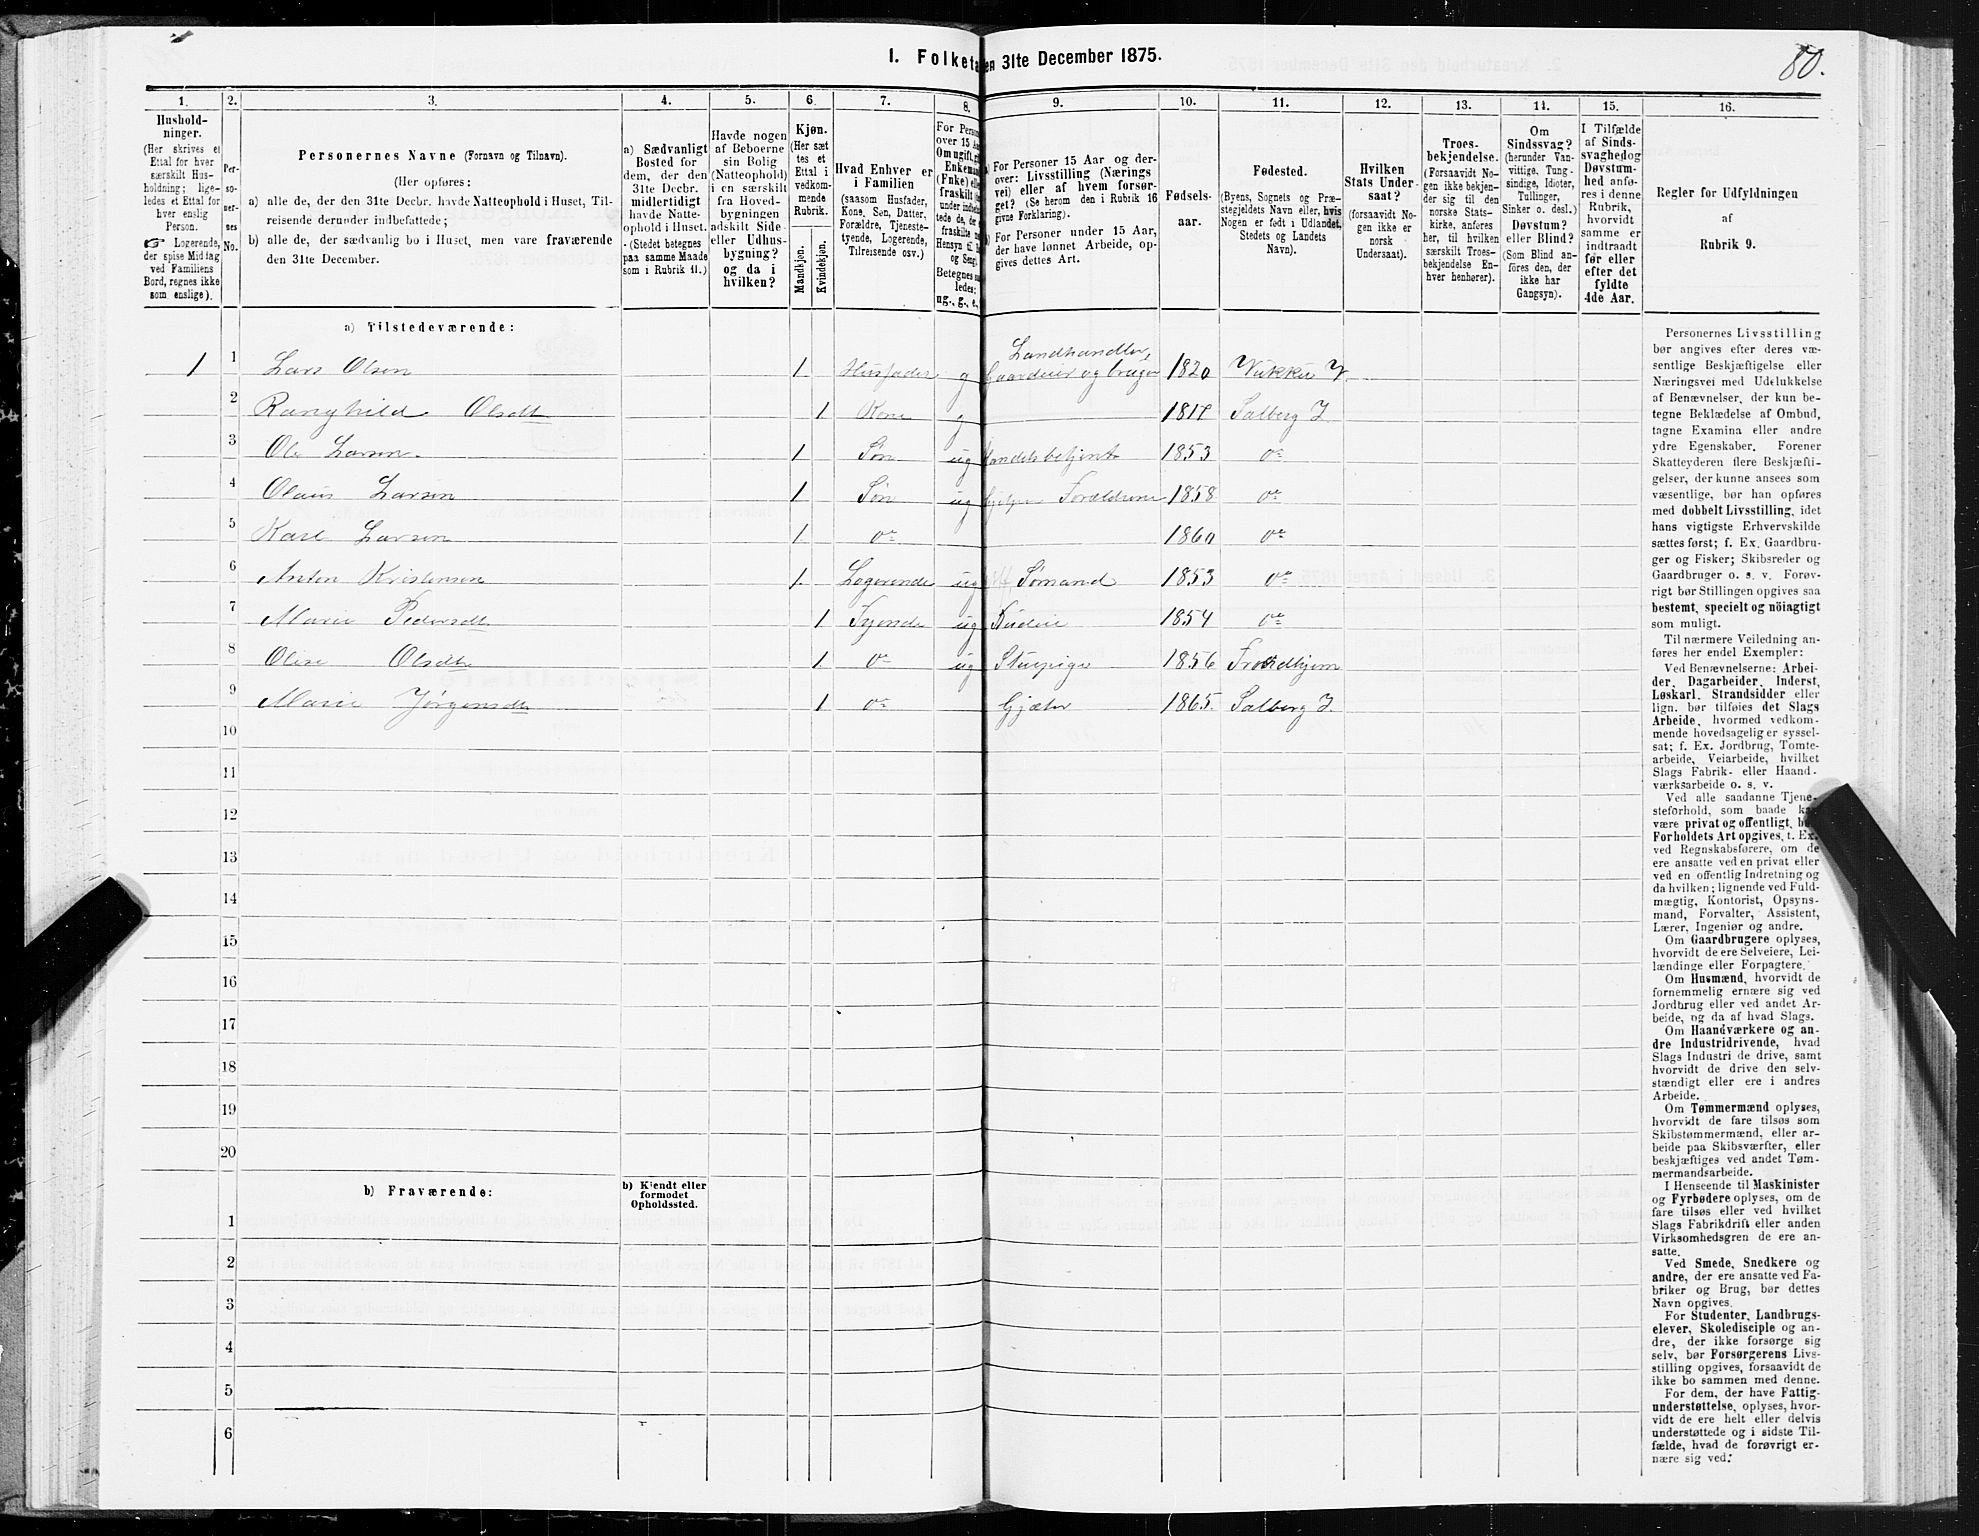 80.
I. Folketa en 31te December 1875.
1. 2. 3. 4. 5. 6. 7. 8. 9. 10. 11. 12. 13. 14. 15. 16.
Hushold-
ninger.
(Her skrives et
Ettal for hver
særskilt Hus-
holdning; lige-
ledes et Ettal for
hver enslig
Person.
☞ Logerende,
der spise Middag
ved Familiens
Bord, regnes ikke
som enslige).
Per-
so-
ner-
nes
No.
Personernes Navne (Fornavn og Tilnavn).
(Her opføres:
a) alle de, der den 31te Decbr. havde Natteophold i Huset, Til-
reisende derunder indbefattede;
b) alle de, der sædvanlig bo i Huset, men vare fraværende
den 31te December.
a) Sædvanligt
Bosted for
dem, der den
31te Decbr.
midlertidigt
havde Natte-
ophold i Huset.
(Stedet betegnes
paa samme Maade
som i Rubrik 11.)
Havde nogen
af Beboerne
sin Bolig
(Natteophold)
i en særskilt
fra Hoved-
bygningen
adskilt Side-
eller Udhus-
bygning?
og da i
hvilken?
Kjøn.
(Her sæt
tes et
Ettal i
vedkom-
mende
Rubrik.
Mandkjøn.
Kvindekjøn.
Hvad Enhver er
i Familien
(saasom Husfader,
Kone, Søn, Datter,
Forældre, Tjeneste-
tyende, Logerende,
Tilreisende osv.)
For Person
over 15 Aar
Om ugift, g
Enkeman
(Fnke) el
fraskilt
under indbe
tede de, der
fraskilte
Hensyn til
og Seng.
Betegnes sa
ledes:
ug., g., e.,
For Personer 15 Aar og der-
over: Livsstilling (Nærings
vei) eller af hvem forsør-
get? (Se herom den i Rubrik 16
givne Forklaring).
For Personer under 15 Aar,
der have lønnet Arbeide, op-
gives dettes Art.
Fødsels-
aar.
Fødested.
(Byens, Sognets og Præ-
stegjeldets Navn eller, hvis
Nogen er født i Udlandet,
Stedets og Landets
Navn).
Hvilken
Stats Under-
saat?
(forsaavidt No-
gen ikke er
norsk
Undersaat).
Troes-
bekjendelse.
(Forsaavidt No-
gen ikke bekjen-
der sig til den
norske Stats-
kirke, anføres
her, til hvilken
særskilt Troes-
bekjendelse En-
hver henhører).
Om
Sindssvag?
(herunder Van-
vittige, Tung-
sindige, Idioter,
Tullinger,
Sinker o. desl.)
Døvstum?
eller Blind?
(Som Blind an-
føres den, der
ikke har
Gangsyn).
I Tilfælde
af Sinds-
svaghed og
Døvstum-
hed anfø-
res i denne
Rubrik,
hvorvidt
samme er
indtraadt
før eller
efter det
fyldte
4de Aar.
Regler for Udfyldningen
af
Rubrik 9.
a) Tilstedeværende:
Landhandler,
1 1 Lars Olsen 1. Husfader g Gaardeier og bruger 1820 Vukku V.
2 Ranghild Olsdt 1. Kone g 1817 Salberg I.
3 Ole Larsen 1. Søn ug Handelsbetjent 1853 do
4 Olaus Larsen 1 Søn ug hjelper Forældrene 1858 do
5 Karl Larsen 1. do 1860 do
6 Anton Kristensen 1. Logerende ug Sømand 1853 do
7 Marie Pedersdt 1. Tyende ug Budeie 1854 do
8 Oline Olsdt 1. do ug Stuepige 1856 Trondhjem
9 Marie Jørgensdt 1. do Gjæter 1865. Salberg I.
10
11
12
13
14
15
16
17
18
19
20
b) Fraværende:
b) Kjendt eller
formodet
Opholdssted.
1
2
3
4
5
6
Personernes Livsstilling
bør angives efter deres væ-
sentlige Beskjæftigelse eller
Næringsvei med Udelukkelse
af Benævnelser, der kun be-
tegne Beklædelse af Ombud,
tagne Examina eller andre
ydre Egenskaber. Forener
Skatteyderen flere Beskjæfti-
gelser, der kunne ansees som
væsentlige, bør han opføres
med dobbelt Livsstilling, idet
hans vigtigste Erhvervskilde
sættes først; f. Ex. Gaardbru-
ger og Fisker; Skibsreder og
Gaardbruger o. s. v. Forøv-
rigt bør Stillingen opgives saa
bestemt, specielt og nöiagtigt
som muligt.
Til nærmere Veiledning an-
føres her endel Exempler:
Ved Benævnelserne: Arbei-
der, Dagarbeider, Inderst,
Løskarl, Strandsidder eller
lign. bør tilføies det Slags
Arbeide, hvormed vedkom-
mende hovedsagelig er syssel-
sat; f. Ex. Jordbrug, Tomte-
arbeide, Veiarbeide, hvilket
Slags Fabrik- eller Haand-
værksarbeide o. s. v.
Ved alle saadanne Tjene-
steforhold, som baade kan
være privat og offentligt, bør
Forholdets Art opgives, t. Ex.
ved Regnskabsførere, om de
ere ansatte ved en privat eller
ved en offentlig Indretning og
da hvilken; lignende ved Fuld-
mægtig, Kontorist, Opsyns-
mand, Forvalter, Assistent,
Lærer, Ingeniør og andre.
Om Gaardbrugere oplyses,
hvorvidt de ere Selveiere, Lei-
lændinge eller Forpagtere.
Om Husmænd, hvorvidt de
fornemmelig ernære sig ved
Jordbrug eller ved andet Ar-
beide, og da af hvad Slags.
Om Haandværkere og an-
dre Industridrivende, hvad
Slags Industri de drive, samt
hvorvidt de drive den selv-
stændigt eller ere i andres
Arbeide.
Om Tømmermænd oplyses,
hvorvidt de fare tilsøs som
Skibstømmermænd, eller ar-
beide paa Skibsværfter, eller
beskjæftiges ved andet Tøm-
mermandsarbeide.
I Henseende til Maskinister
og Fyrbødere oplyses, om de
fare tilsøs eller ved hvilket
Slags Fabrikdrift eller anden
Virksomhedsgren de ere an-
satte.
Ved Smede, Snedkere og
andre, der ere ansatte ved Fa-
briker og Brug, bør dettes
Navn opgives.
For Studenter, Landbrugs-
elever, Skoledisciple og an-
dre, der ikke forsørge sig
selv, bør Forsørgerens Livs-
stilling opgives, forsaavidt de
ikke bo sammen med denne.
For dem, der have Fattig-
understøttelse, oplyses, hvor-
vidt de ere helt eller delvis
understøttede og i sidste Til-
fælde, hvad de forøvrigt er-
nære sig ved.